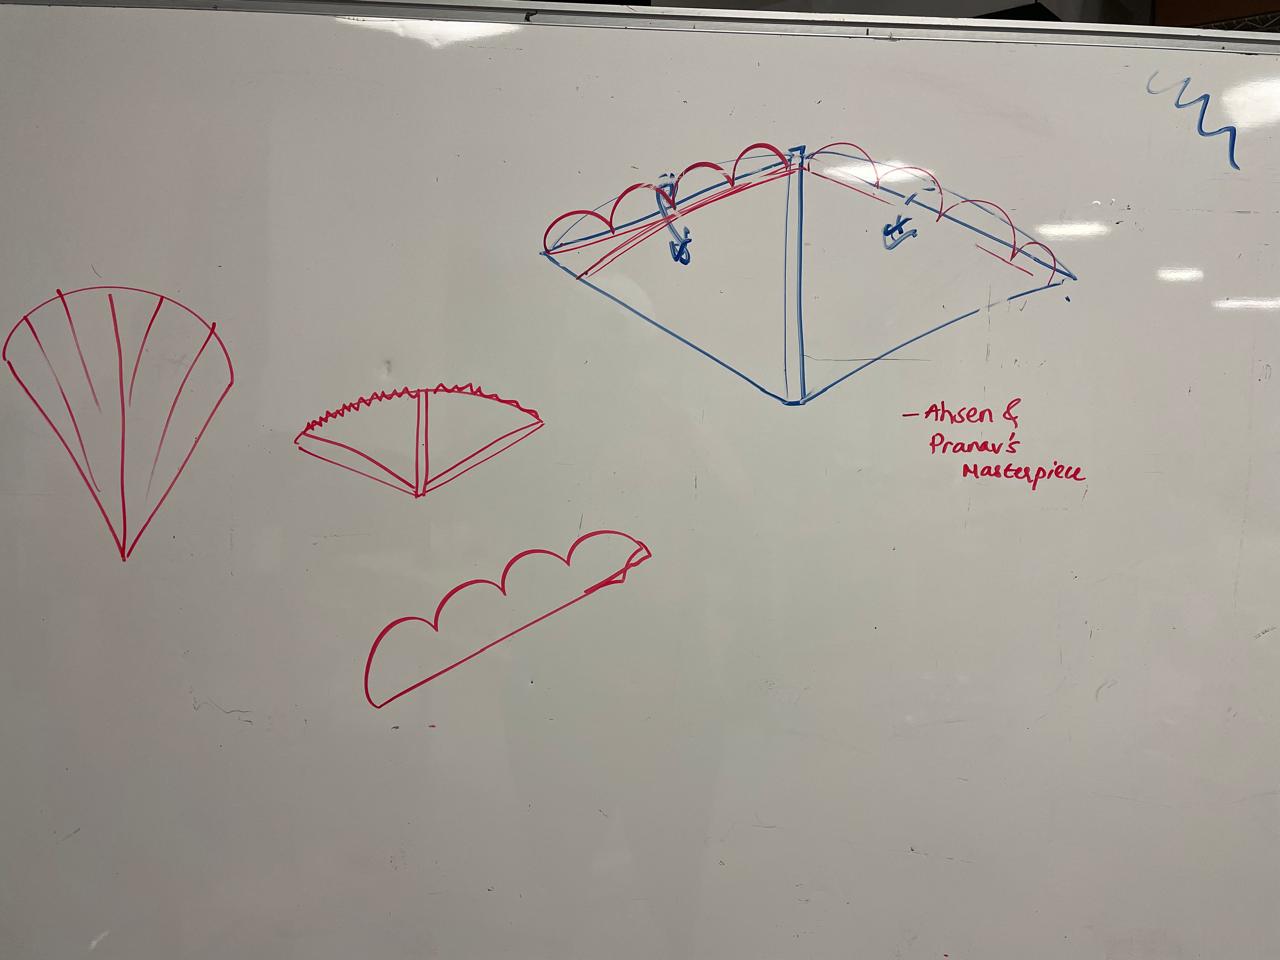 - Ahsen &
Pranav's
Masterpiece